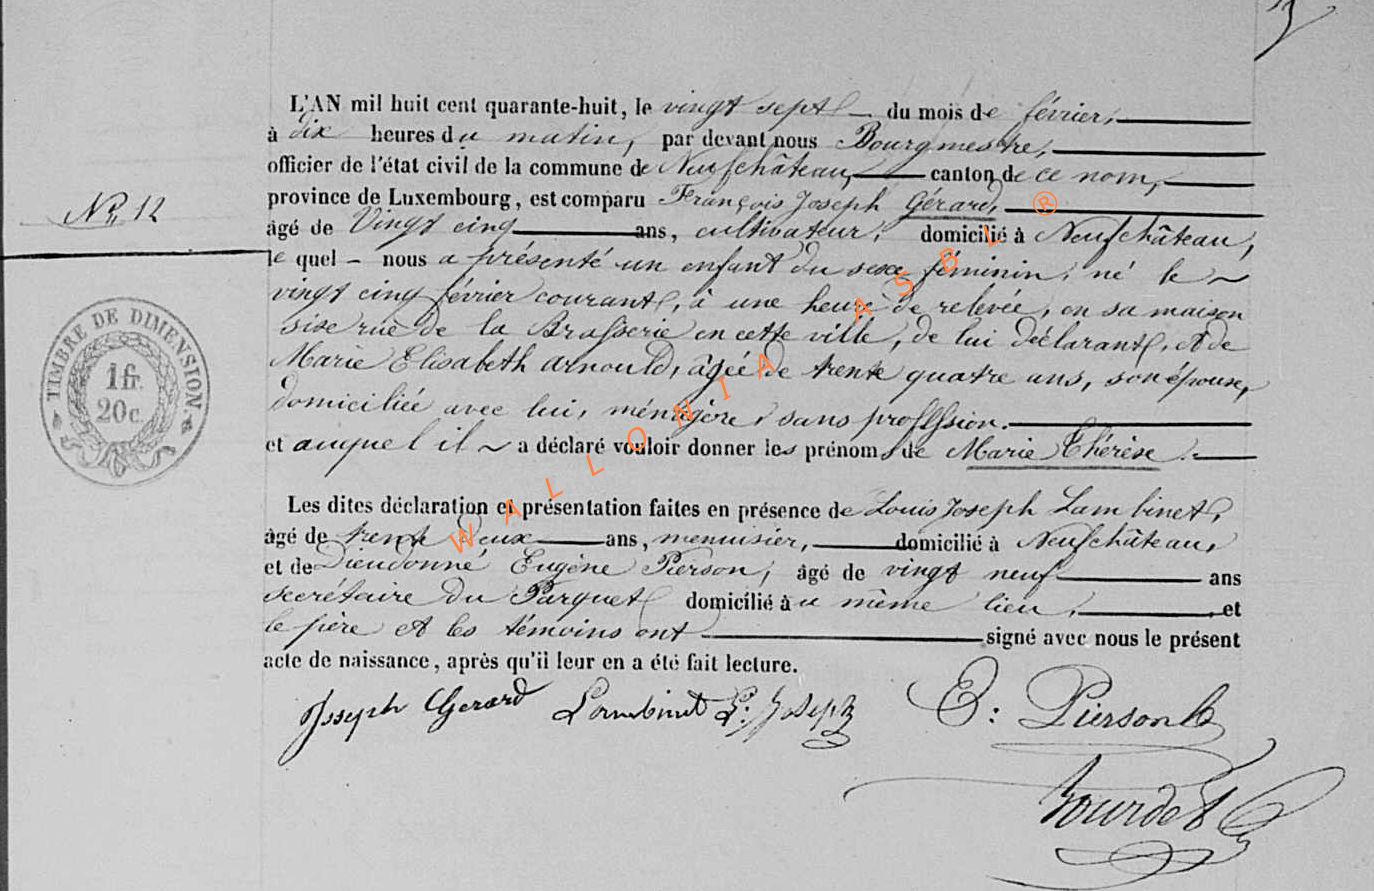 L'AN mil huit cent quarante-huit, le vingt sept du mois de février,
à dix heures du matin, par devant nous Bourgmestre,
officier de l'état civil de la commune de Neufchâteau, canton de ce nom,
province de Luxembourg, est comparu François Joseph Gérard,
âgé de Vingt cinq ans, cultivateur, domicilié à Neufchâteau,
le quel nous a présenté un enfant du sexe féminin, né le
vingt cinq février courant, à une heure de relevée, en sa maison
sise rue de la Brasserie en cette ville, de lui déclarant, et de
Marie Elisabeth Arnould, âgée de trente quatre ans, son épouse,
domiciliée avec lui, ménagère, sans proffession.
et auquel il a déclaré vouloir donner les prénoms de Marie Thérèse.
Les dites déclaration et présentation faites en présence de Louis Joseph Lambinet,
âgé de trente deux ans, menuisier, domicilié à Neufchâteau,
et de Dieudonné Eugène Pierson, âgé de vingt neuf ans
secrétaire du Parquet domicilié au même lieu, et
le père et les témoins ont signé avec nous le présent
acte de naissance, après qu'il leur en a été fait lecture.
Joseph Gerard Lambinet L: Joseph E: Pierson
Bourdet
No. 12
TIMBRE DE DIMENSION.
1 fr.
20 c.
WALLONIA ASBL ®